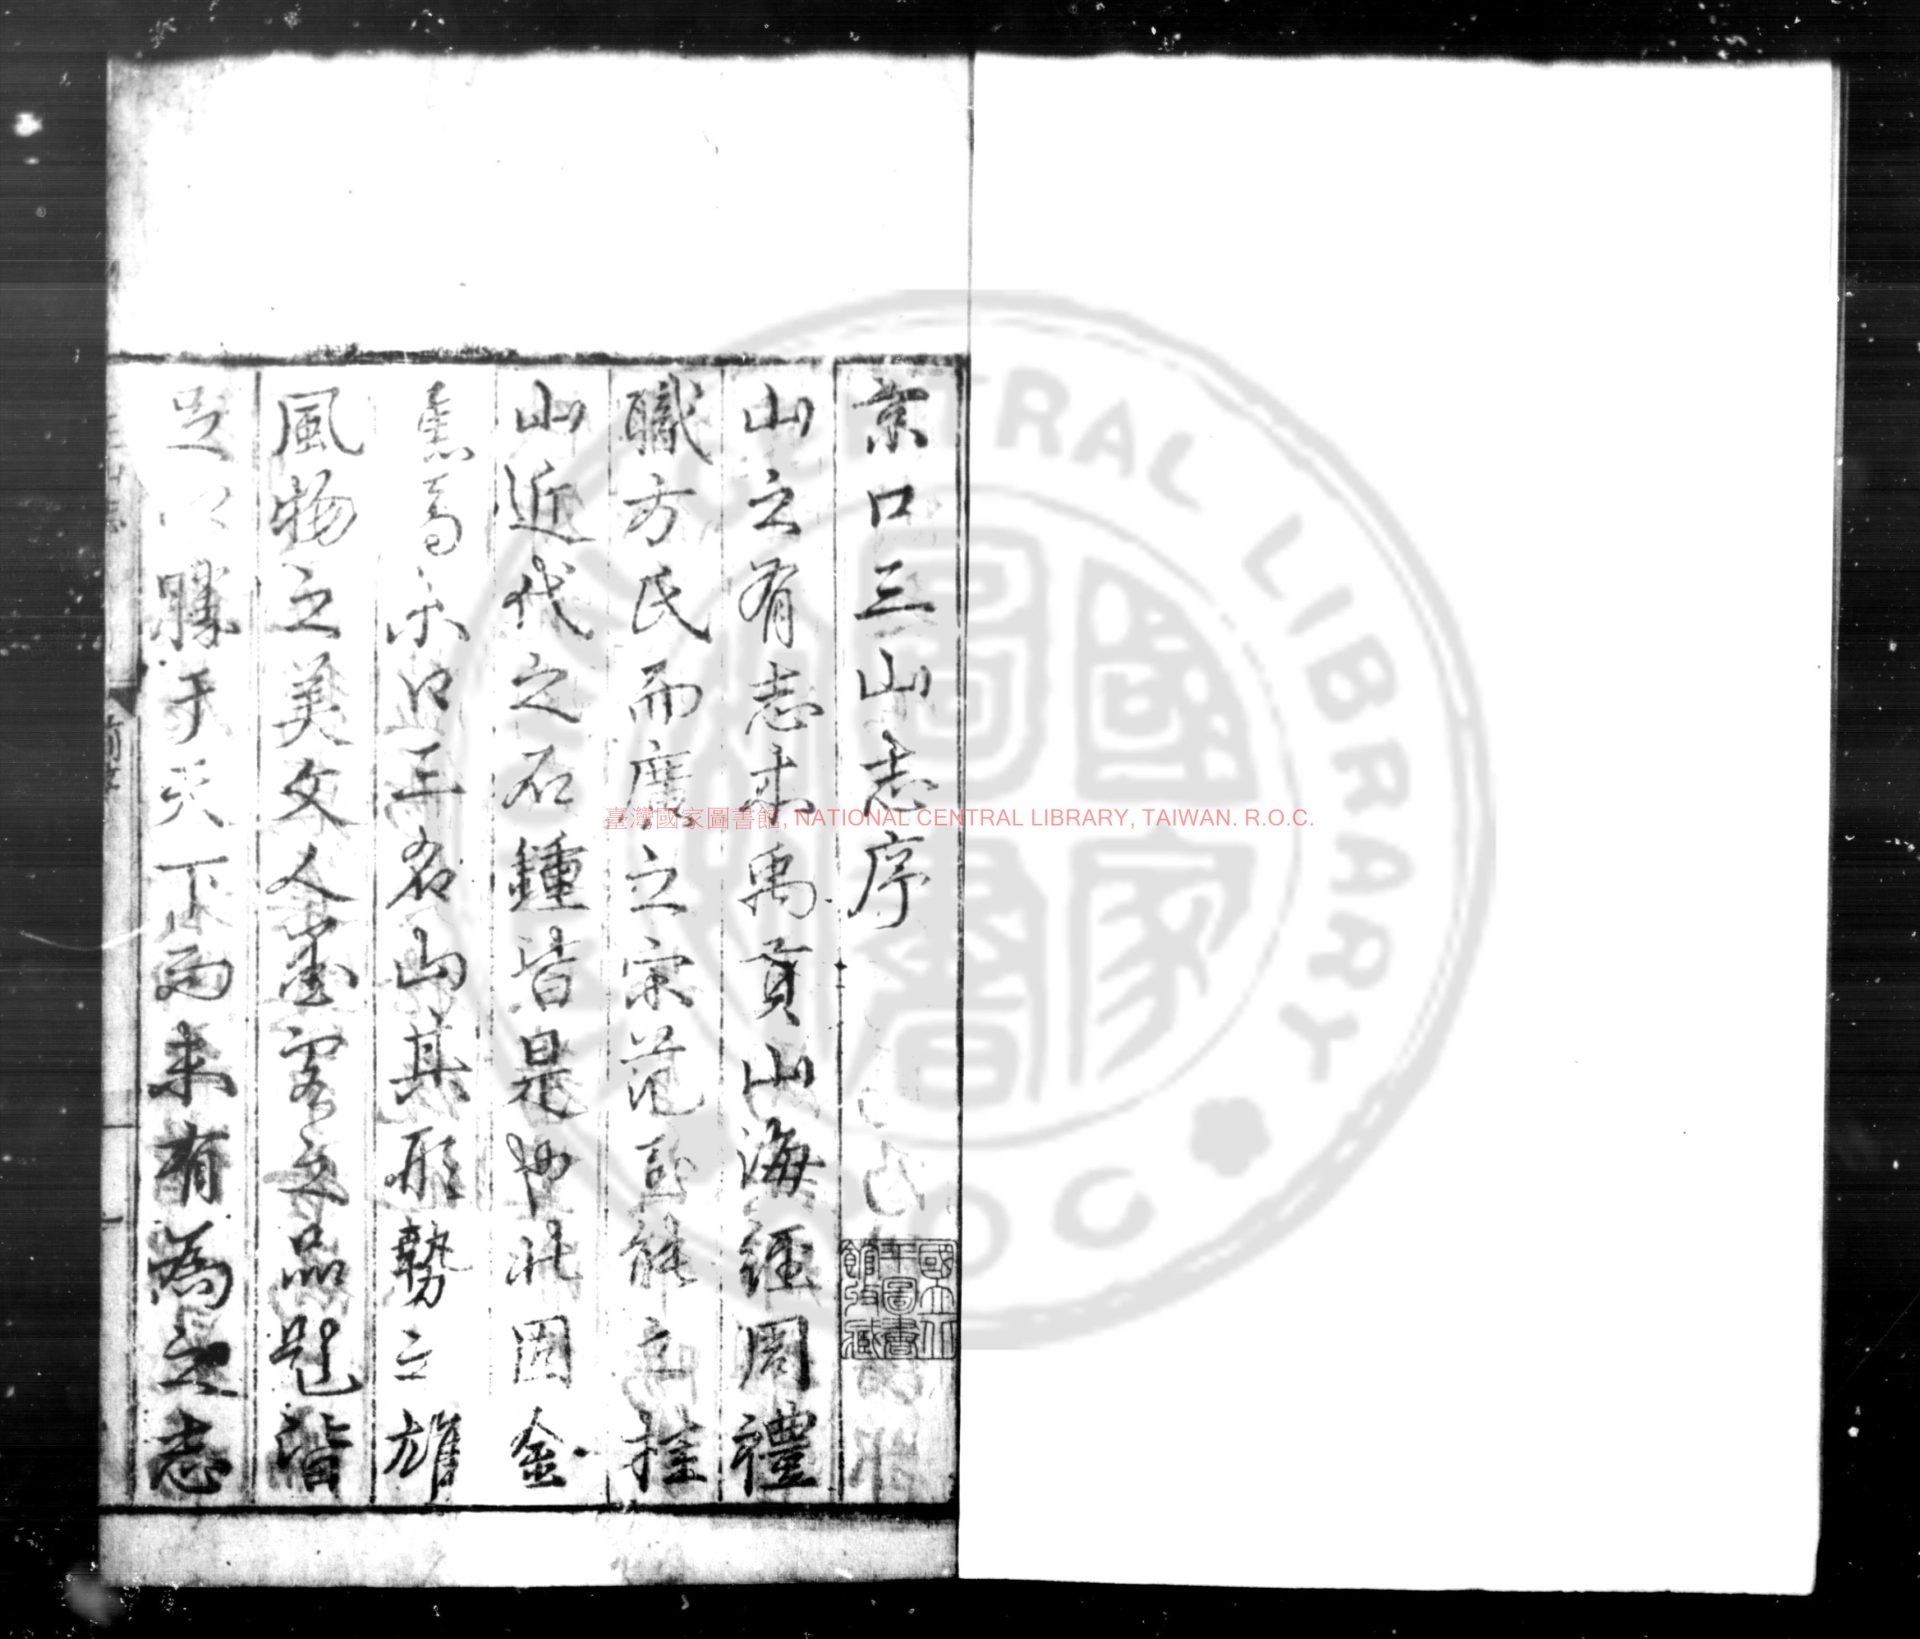 京口三山志序
山之有志本禹貢山海經周禮
職方氏而廣之宋范至能之桂
山近代之石鍾皆是也北固金
焦焉京口三名山其形勢之雄
風物之美文人墨客之品題皆
足以勝于天下而未有為之志
國立北
平圖書
館收藏
臺灣國家圖書館, NATIONAL CENTRAL LIBRARY, TAIWAN. R.O.C.